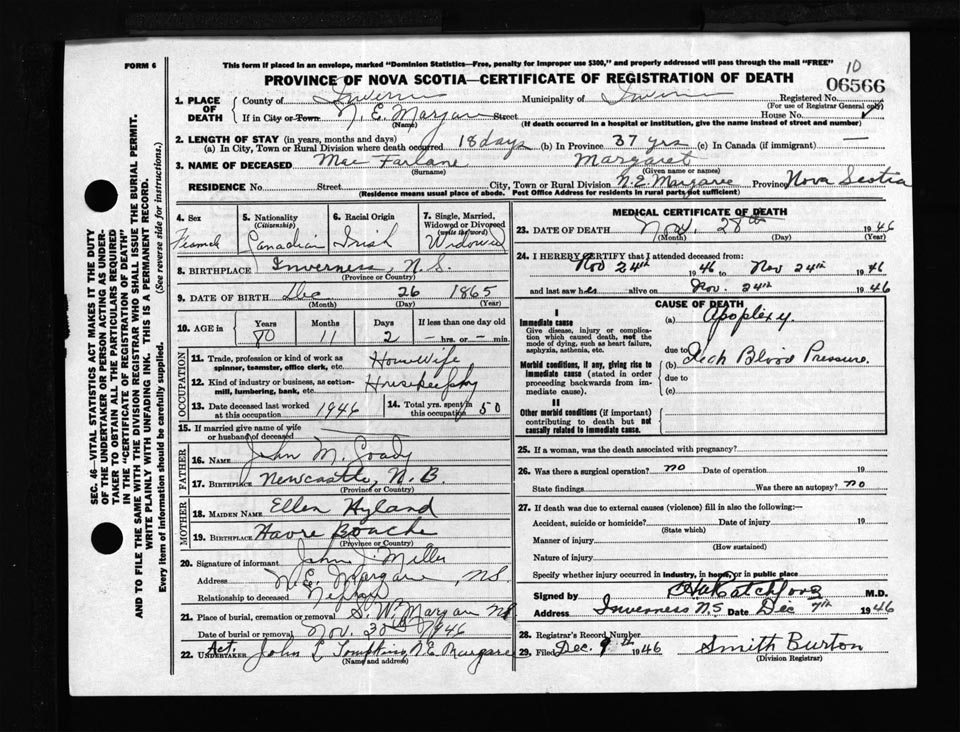 FORM 6
This form if placed in an envelope, marked "Dominion Statistics—Free, penalty for improper use $300," and properly addressed will pass through the mail "FREE"
PROVINCE OF NOVA SCOTIA—CERTIFICATE OF REGISTRATION OF DEATH
10
06566
1. PLACE OF DEATH
County of Inverness Municipality of Inverness Registered No.
(For use of Registrar General only)
If in City or Town N. E. Margaree Street House No.
(Name)
(If death occurred in a hospital or institution, give the name instead of street and number)
2. LENGTH OF STAY (in years, months and days)
(a) In City, Town or Rural Division where death occurred 18 days (b) In Province 37 yrs (c) In Canada (if immigrant) —
3. NAME OF DECEASED Mac Farlane Margaret
(Surname) (Given name or names)
RESIDENCE No. Street City, Town or Rural Division N.E. Margaree Province Nova Scotia
(Residence means usual place of abode. Post Office Address for residents in rural parts not sufficient)
4. Sex
5. Nationality (Citizenship)
6. Racial Origin
7. Single, Married, Widowed or Divorced (write the word)
Canadian Irish Widowed
8. BIRTHPLACE Inverness, N.S.
(Province or Country)
9. DATE OF BIRTH Dec 26 1865
(Month) (Day) (Year)
10. AGE in Years Months Days If less than one day old
80 11 2 — hrs. or — min.
OCCUPATION
11. Trade, profession or kind of work as spinner, teamster, office clerk, etc. HouseWife
12. Kind of industry or business, as cotton-mill, lumbering, bank, etc.
13. Date deceased last worked at this occupation 1946
14. Total yrs. spent in this occupation 50
15. If married give name of wife or husband of deceased
FATHER
16. Name John M.
17. Birthplace Newcastle, N. B.
(Province or Country)
MOTHER
18. Maiden Name Ellen Hyland
19. Birthplace Havre Bouche
(Province or Country)
20. Signature of informant John J. Miller
Address N. E. Margaree, NS.
Relationship to deceased Nephew
21. Place of burial, cremation or removal S. W. Margaree NS
Date of burial or removal Nov. 30th 1946
22. Act. Undertaker John L Tompkins, N.E. Margaree
(Name and address)
MEDICAL CERTIFICATE OF DEATH
23. DATE OF DEATH Nov. 28th 1946
(Month) (Day) (Year)
24. I HEREBY CERTIFY that I attended deceased from:
Nov 24th 1946 to Nov 24th 1946
and last saw her alive on Nov. 24th 1946
CAUSE OF DEATH
I
Immediate cause
Give disease, injury or complication which caused death, not the mode of dying, such as heart failure, asphyxia, asthenia, etc.
(a) Apoplexy.
due to
Morbid conditions, if any, giving rise to immediate cause (stated in order proceeding backwards from immediate cause).
(b) High Blood Pressure.
due to
(c)
II
Other morbid conditions (if important) contributing to death but not causally related to immediate cause.
25. If a woman, was the death associated with pregnancy?
26. Was there a surgical operation? no Date of operation 19
State findings Was there an autopsy? no
27. If death was due to external causes (violence) fill in also the following:—
Accident, suicide or homicide? Date of injury 19
(State which)
Manner of injury
(How sustained)
Nature of injury
Specify whether injury occurred in industry, in home, or in public place
Signed by M.D.
Address Inverness N.S Date Dec 7th 1946
28. Registrar's Record Number
29. Filed Dec. 9th 1946 Smith Burton
(Division Registrar)
SEC. 46—VITAL STATISTICS ACT MAKES IT THE DUTY
OF THE UNDERTAKER OR PERSON ACTING AS UNDER-
TAKER TO OBTAIN ALL THE PARTICULARS REQUIRED
IN THE "CERTIFICATE OF REGISTRATION OF DEATH"
AND TO FILE THE SAME WITH THE DIVISION REGISTRAR WHO SHALL ISSUE THE BURIAL PERMIT.
WRITE PLAINLY WITH UNFADING INK. THIS IS A PERMANENT RECORD.
Every item of information should be carefully supplied. (See reverse side for instructions.)